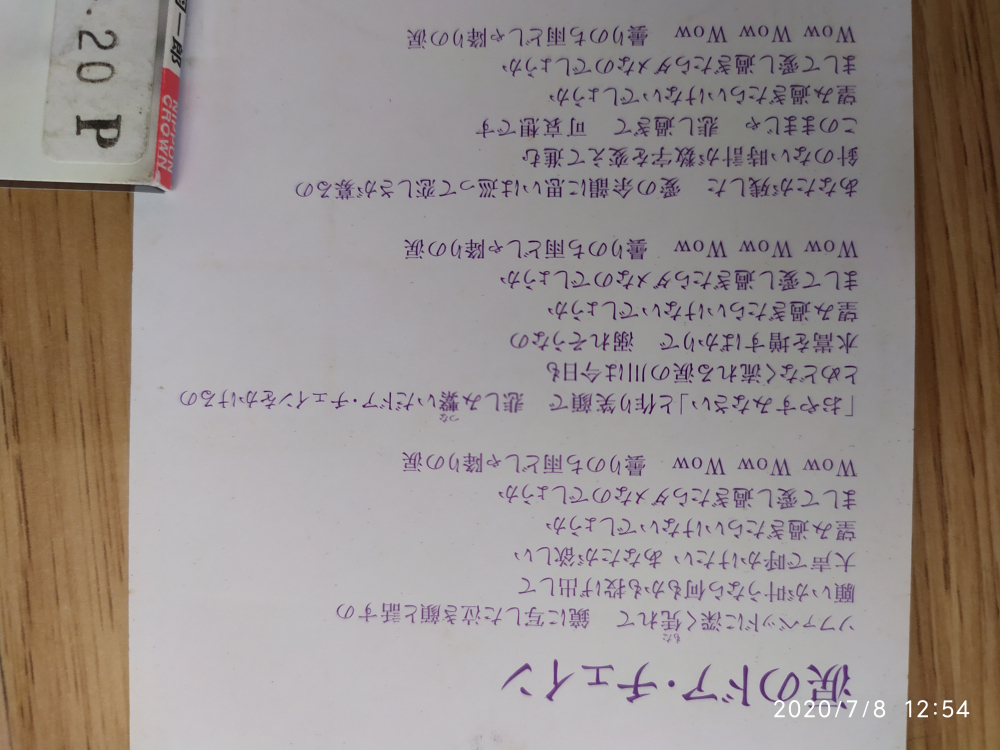 涙のドア・チェイン
ソファベッドに深く凭れて　鏡に写した泣き顔と話すの
もた
願いが叶うなら何もかも投げ出して
大声で呼かけたい あなたが欲しい
望み過ぎたらいけないでしょうか
まして愛し過ぎたらダメなのでしょうか
Wow Wow Wow　曇りのち雨どしゃ降りの涙
「おやすみなさい」と作り笑顔で　悲しみ繋いだドア・チェインをかけるの
つな
とめどなく流れる涙の川は今日も
水嵩を増すばかりで　溺れそうなの
望み過ぎたらいけないでしょうか
まして愛し過ぎたらダメなのでしょうか
Wow Wow Wow　曇りのち雨どしゃ降りの涙
あなたが残した　愛の余韻に思いは巡って恋しさが募るの
針のない時計が数字を変えて進む
このままじゃ　悲し過ぎて　可哀想です
望み過ぎたらいけないでしょうか
まして愛し過ぎたらダメなのでしょうか
Wow Wow Wow　曇りのち雨どしゃ降りの涙
一郎
NIPPON
CROWN
.20 P
2020/7/8 12:54